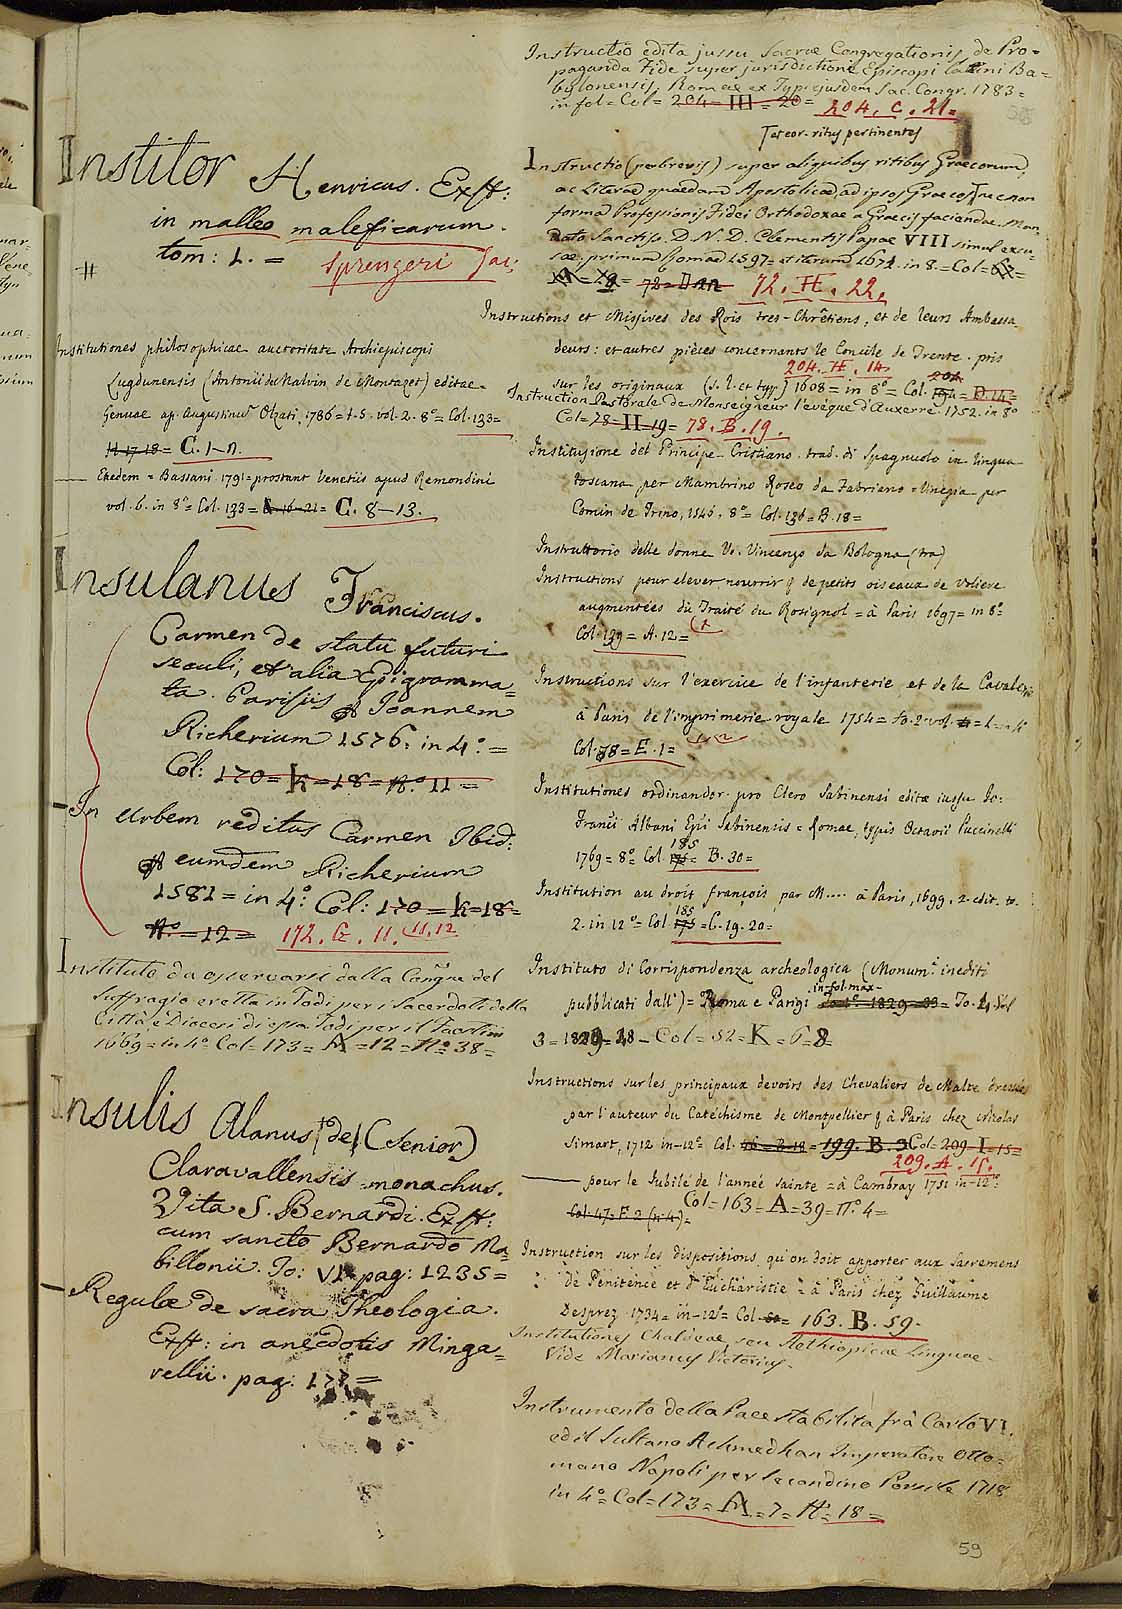 Institor Henricus. Exst:
in malleo maleficarum.
tom: 1. = Sprengeri Jac:
Institutiones philosophicae auctoritate Archiepiscopi
Lugdunensis (Antonii du Malvin de Montazet) editae =
Genuae ap. Augustinus Olzati, 1786 = t. 5. vol. 2. 8º = Col. 133 =
H 17-18 = C. 1-11.
Eaedem = Bassani. 1791 = prostant Venetiis apud Remondini
vol. 6. in 8º = Col. 133 = 16-21 = C. 8-13.
Insulanus Franciscus.
Carmen de statu futuri
seculi, et alia Epigramma=
ta. Parisiis Joannem
Richerium 1576. in 4º. =
Col: 170 = k = 18 = Nº. 11 =
In Urbem reditus Carmen Ibid:
eumdem Richerium
1581 = in 4º. Col: 170 = k = 18 =
Nº = 12 = 172. G. 11. 11. 12
Instituto da osservarsi dalla Congne del
Suffragio eretta in Todi per i Sacerdoti della
Città, e Diocesi di essa Todi per il Faostini
1669 = in 4º Col = 173 = M = 12 = Nº 38 =
Insulis Alanus (de) (Senior)
Claravallensis monachus.
Vita S. Bernardi. Exst:
cum sancto Bernardo Ma=
billonii. To: VI. pag: 1235 =
Regulae de sacra Theologia.
Exst: in anecdotis Minga=
rellii. pag: 177 =
Instructio edita jussu Sacrae Congregationis de Pro=
paganda Fide super jurisdictione Episcopi latini Ba=
bylonensis, Romae ex Typ: ejusdem Sac. Congr. 1783 =
in fol = Col = 204 = III = 20 = 204. C. 21 =
ad eor. ritus pertinentes
Instructio (perbrevis) super aliquibus ritibus Graecorum,
ac Literae quaedam Apostolicae, ad ipsos Graecos, nec non
forma Professionis Fidei Orthodoxae a Graecis faciendae. Man=
dato Sanctiss. D. N. D. Clementis Papae VIII simul excu=
sae: primum Romae 1597 = et iterum 1671. in 8. = Col =
72 = 72. H. 22.
Instructions et Missives des Rois tres-Chrêtiens, et de leurs Ambassa
deurs: et autres pièces concernants le Concile de Trente. pris
204. H. 14.
sur les originaux (s. l. et typ) 1608 = in 8º = Col. 204 = D. 14 =
Instruction Pastorale de Monseigneur l'evéque d'Auxerre 1752. in 8º
Col = 78 = II = 19 = 78. B. 19.
Institusione del Principe Cristiano. trad. di Spagnuolo in lingua
toscana per Mambrino Roseo da Fabriano = Vinegia per
Comin de Trino, 1545. 8º = Col. 136 = B. 18 =
Instruttorio delle donne V. Vincenzo da Bologna (fra)
Instructions pour elever nourrir & de petits oiseaux de voliere
augmentées du Traité du Rosignol = à Paris 1697 = in 8º =
Col. 139 = A. 12 =
Instructions sur l'exercice de l'infanterie et de la Cavalerie
à Paris de l'imprimerie royale 1754 = to. 2. vol. 1 = in 4º
Col. 78 = E. 1 =
Institutiones ordinandor. pro Clero Sabinensi editae iussu Jo:
Francii Albani Epi Sabinensis = Romae, typis Octavii Puccinelli
185
1769 = 8º = Col. = B. 30 =
Institution au droit françois par M.... à Paris, 1699. 2. edit. to.
185
2. in 12º = Col = C. 19. 20 =
Instituto di Corrispondenza archeologica (Monum. inediti
in fol. max =
pubblicati dall') = Roma e Parigi 1829-33 = To. 2. Vol
3 = 1829 - 38 - Col = 52 = K = 6 = 8
Instructions sur les principaux devoirs des Chevaliers de Malte dressées
par l'auteur du Catéchisme de Montpellier & à Paris chez Nicolas
Simart, 1712 in-12º Col. = 199. B. 3 Col = 209 = I = 15 =
209. A. 15.
pour le Jubilé de l'année Sainte = à Cambray 1751 in-12º
Col = 163 = A = 39 = nº. 4 =
Col. 47 = F. 2 (n. 4) =
Instruction sur les dispositions qu'on doit apporter aux Sacremens
de Pénitence et d'Eucharistie = à Paris chez Guillaume
Desprez 1734 = in-12º = Col = 163. B. 59.
Institutiones Chaldeae, seu Aethiopicae Linguae.
Vide Marianus Victorius.
Instrumento della Pace stabilita frà Carlo VI.
ed il Sultano Achmed han Imperatore Otto=
mano Napoli per Secondino Porsile 1718
in 4º = Col = 173 = M = 7 = Nº 18 =
59